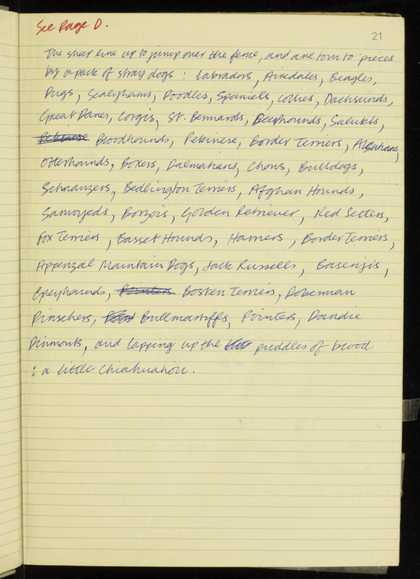 See Page D.
21
The sheep line up to jump over the fence, and are torn to pieces
by a pack of stray dogs : Labradors, Airedales, Beagles,
Pugs, Sealyhams, Poodles, Spaniels, Collies, Dachsunds,
Great Danes, Corgis, St. Bernards, Deerhounds, Salukis,
Bloodhounds, Pekinese, Border Terriers, Alsatians,
Otterhounds, Boxers, Dalmatians, Chows, Bulldogs,
Schnauzers, Bedlington Terriers, Afghan Hounds,
Samoyeds, Borzois, Golden Retriever, Red Setters,
Fox Terriers, Basset Hounds, Harriers, Border Terriers,
Appenzal Mountain Dogs, Jack Russells, Basenjis,
Greyhounds, Boston Terriers, Doberman
Pinschers, Bullmastiffs, Pointers, Dandie
Dinmonts, and lapping up the puddles of blood
: a little Chiahuahau.